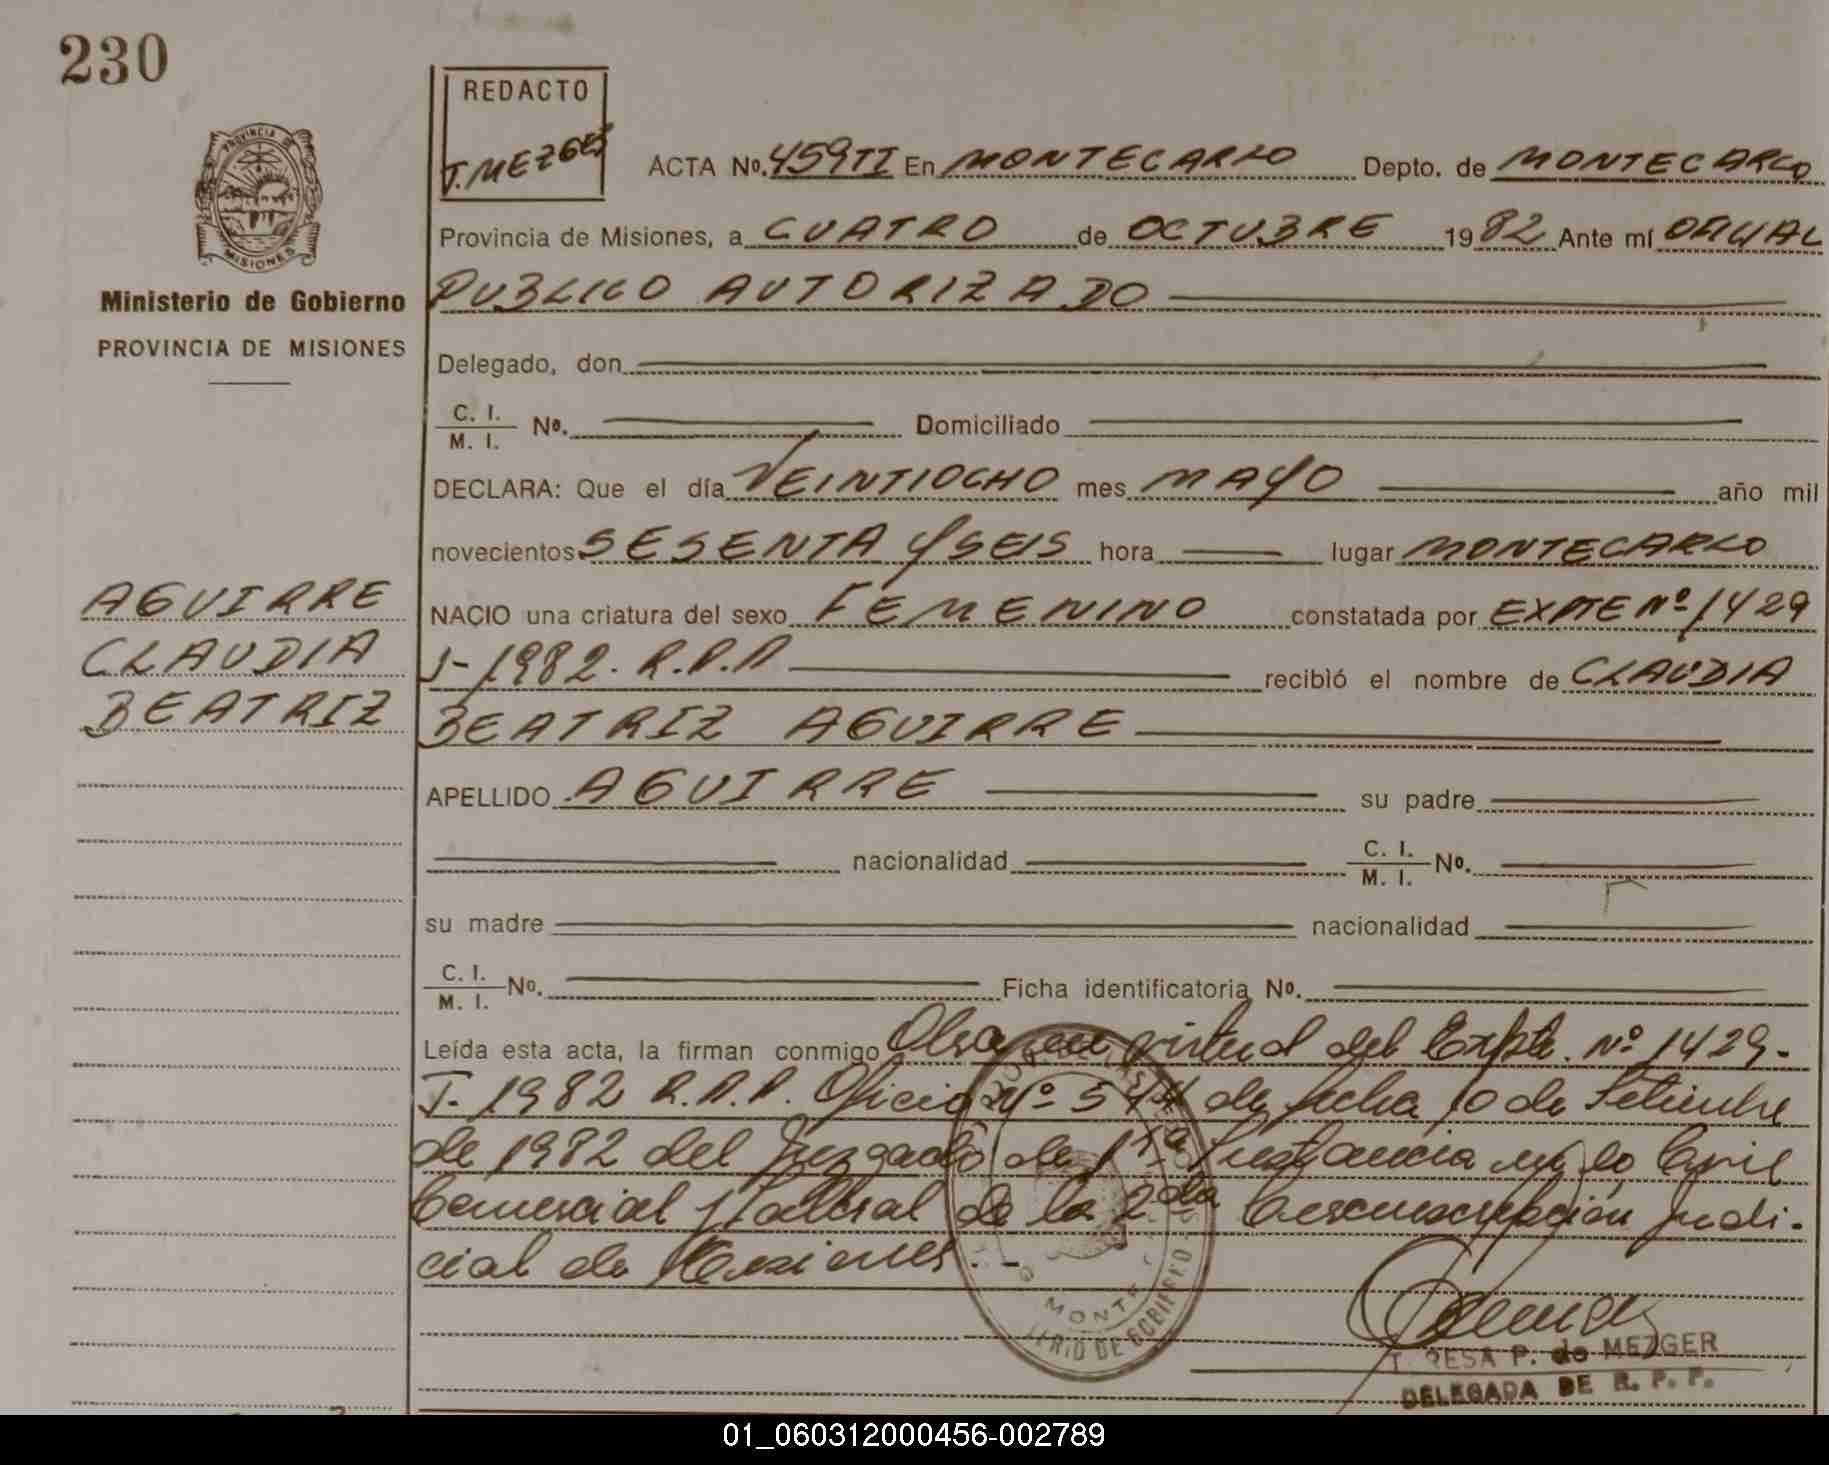 230
REDACTO
T. MEZGER
PROVINCIA DE
MISIONES
Ministerio de Gobierno
PROVINCIA DE MISIONES
AGUIRRE
CLAUDIA
BEATRIZ
ACTA Nº. 459 TI En MONTECARLO Depto. de MONTECARLO
Provincia de Misiones, a CUATRO de OCTUBRE 1982 Ante mí OFICIAL
PUBLICO AUTORIZADO
Delegado, don
C. I.
M. I. Nº. Domiciliado
DECLARA: Que el día VEINTIOCHO mes MAYO año mil
novecientos SESENTA Y SEIS hora lugar MONTECARLO
NACIO una criatura del sexo FEMENINO constatada por EXPTE Nº 1429
J-1982. R.P.P recibió el nombre de CLAUDIA
BEATRIZ AGUIRRE
APELLIDO AGUIRRE su padre
nacionalidad C. I.
M. I. Nº.
su madre nacionalidad
C. I.
M. I. Nº. Ficha identificatoria Nº.
Leída esta acta, la firman conmigo en virtud del Expte. Nº 1429-
J- 1982 R.P.P. Oficio Nº 544 de fecha 10 de Setiembre
de 1982 del Juzgado de 1ra Instancia en lo Civil
Comercial y Laboral de la 2da Circunscripción Judi-
cial de Misiones.-
MONTE
TERIO DE GOBIERNO
T. RESA P. de MEZGER
DELEGADA DE R. P. P.
01_060312000456-002789